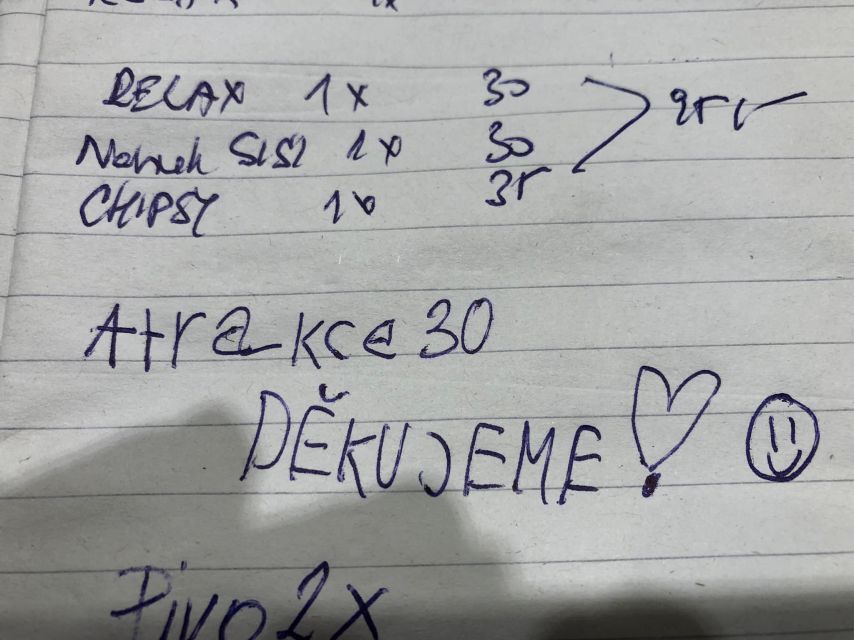 RELAX 1x 30
SISI 1x 30 95
CHIPSY 1x 35
Atrakce 30
DĚKUJEME!
Pivo 2x